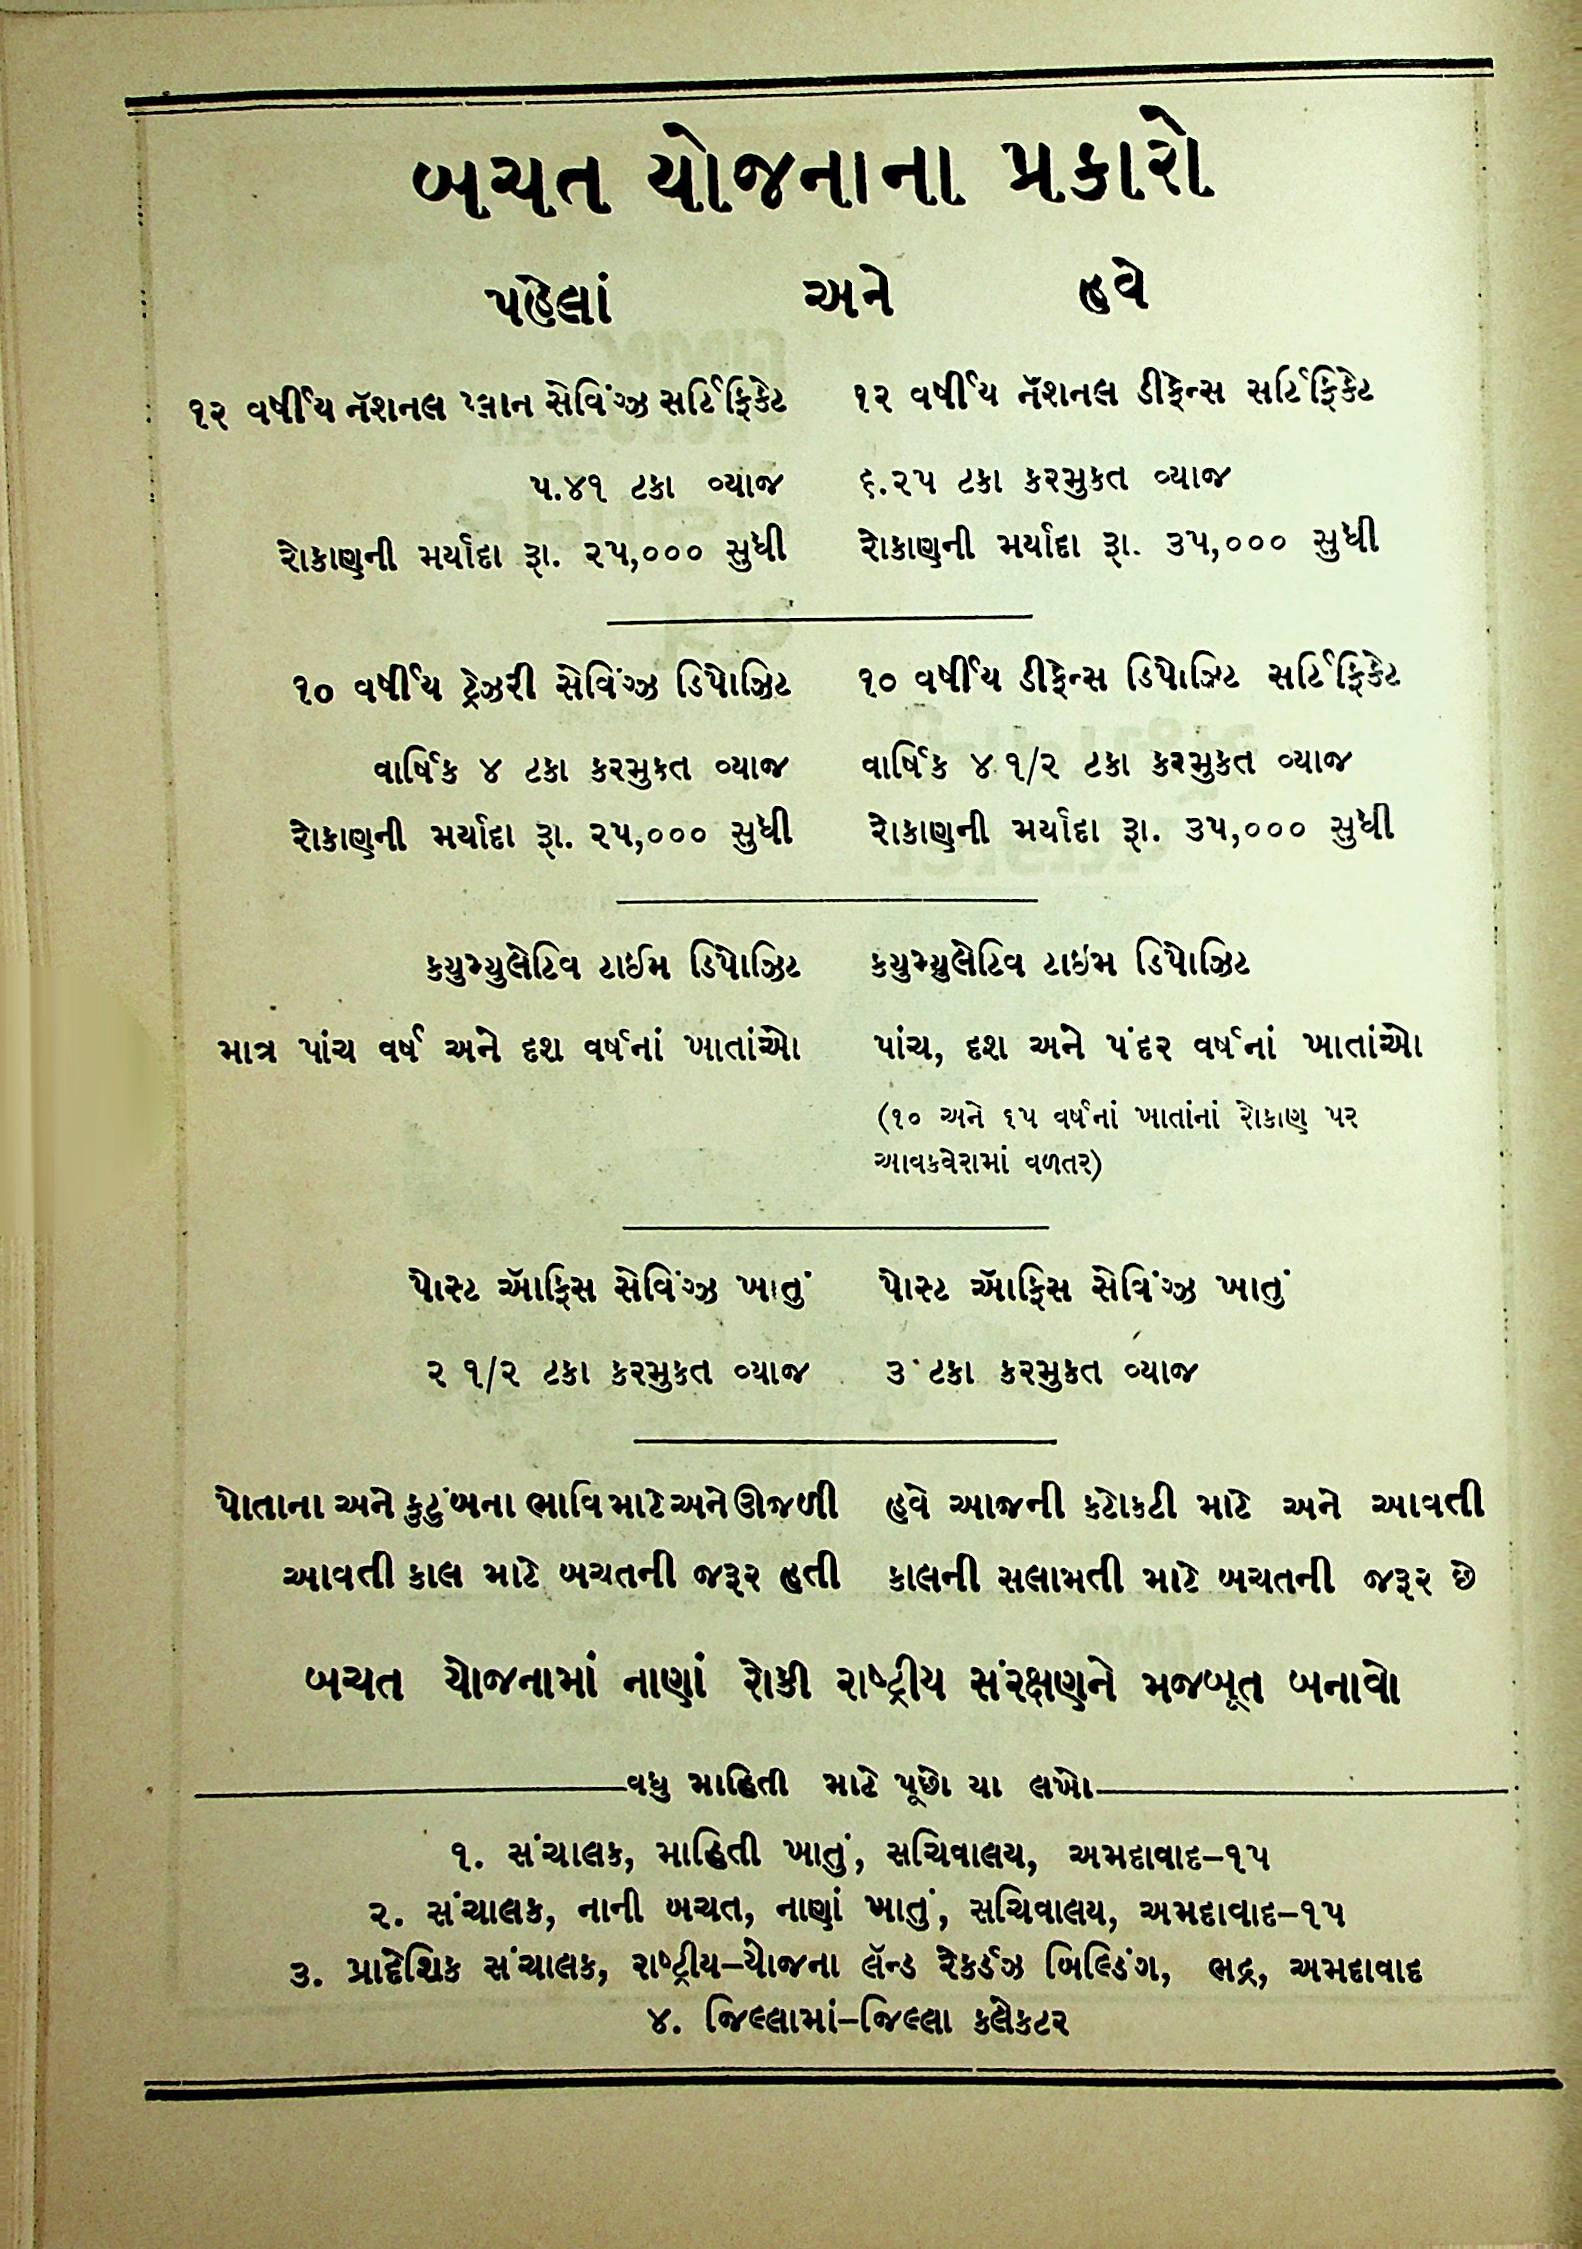 બચત યોજનાના પ્રકારો
પહેલાં અને હવે
૧૨ વર્ષીય નૅશનલ પ્લાન સેવિંગ્ઝ સર્ટિફિકેટ
૫.૪૧ ટકા વ્યાજ
રોકાણની મર્યાદા રૂા. ૨૫,૦૦૦ સુધી
૧૨ વર્ષીય નૅશનલ ડીફેન્સ સર્ટિફિકેટ
૬.૨૫ ટકા કરમુકત વ્યાજ
રોકાણની મર્યાદા રૂા. ૩૫,૦૦૦ સુધી
૧૦ વર્ષીય ટ્રેઝરી સેવિંગ્ઝ ડિપોઝિટ
વાર્ષિક ૪ ટકા કરમુકત વ્યાજ
રોકાણની મર્યાદા રૂા. ૨૫,૦૦૦ સુધી
૧૦ વર્ષીય ડીફેન્સ ડિપોઝિટ સર્ટિફિકેટ
વાર્ષિક ૪ ૧/૨ ટકા કરમુકત વ્યાજ
રોકાણની મર્યાદા રૂા. ૩૫,૦૦૦ સુધી
કયુમ્યુલેટિવ ટાઈમ ડિપોઝિટ
માત્ર પાંચ વર્ષ અને દશ વર્ષનાં ખાતાંઓ
કયુમ્યુલેટિવ ટાઇમ ડિપોઝિટ
પાંચ, દશ અને પંદર વર્ષનાં ખાતાંઓ
(૧૦ અને ૧૫ વર્ષનાં ખાતાંનાં રોકાણ પર
આવકવેરામાં વળતર)
પોસ્ટ ઑફિસ સેવિંગ્ઝ ખાતું
૨ ૧/૨ ટકા કરમુકત વ્યાજ
પોસ્ટ ઑફિસ સેવિંગ્ઝ ખાતું
૩ ટકા કરમુકત વ્યાજ
પોતાના અને કુટુંબના ભાવિ માટે અને ઊજળી
આવતી કાલ માટે બચતની જરૂર હતી
હવે આજની કટોકટી માટે અને આવતી
કાલની સલામતી માટે બચતની જરૂર છે
બચત યોજનામાં નાણાં રોકી રાષ્ટ્રીય સંરક્ષણને મજબૂત બનાવો
વધુ માહિતી માટે પૂછો યા લખો
૧. સંચાલક, માહિતી ખાતું, સચિવાલય, અમદાવાદ–૧૫
૨. સંચાલક, નાની બચત, નાણાં ખાતું, સચિવાલય, અમદાવાદ–૧૫
૩. પ્રાદેશિક સંચાલક, રાષ્ટ્રીય–યોજના લૅન્ડ રેકર્ડઝ બિલ્ડિંગ, ભદ્ર, અમદાવાદ
૪. જિલ્લામાં–જિલ્લા કલેકટર